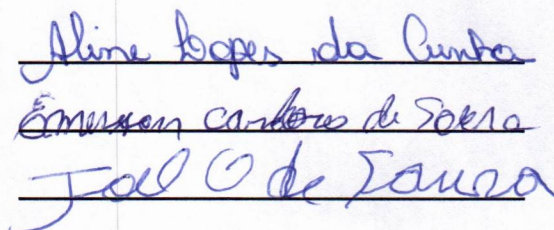 Aline Lopes da Cunha
Emerson cardoso de Sousa
Joel O de Souza